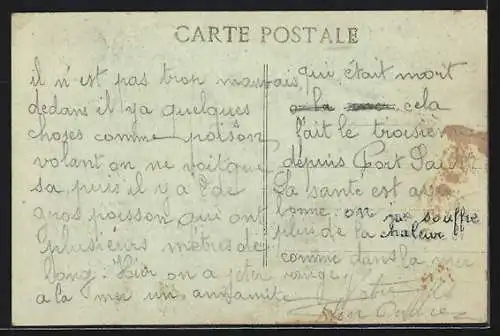 CARTE POSTALE
il n'est pas trop mauvais
dedans il y a quelques
choses comme poison
volant on ne voit que
sa, puis il y a de
gros poisson qui ont
plusieurs mètres de
long; Hier on a jeter
a la mer un annamite
qui était mort
a la cela
fait le troisièm
depuis Port Said
La sante est ass
bonne on ne souffre
plus de la chaleur
comme dans la mer
rouge.